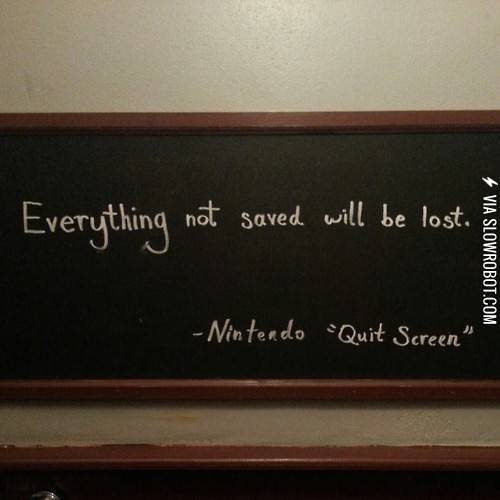 Everything not saved will be lost.
-Nintendo "Quit Screen"
VIA SLOWROBOT.COM